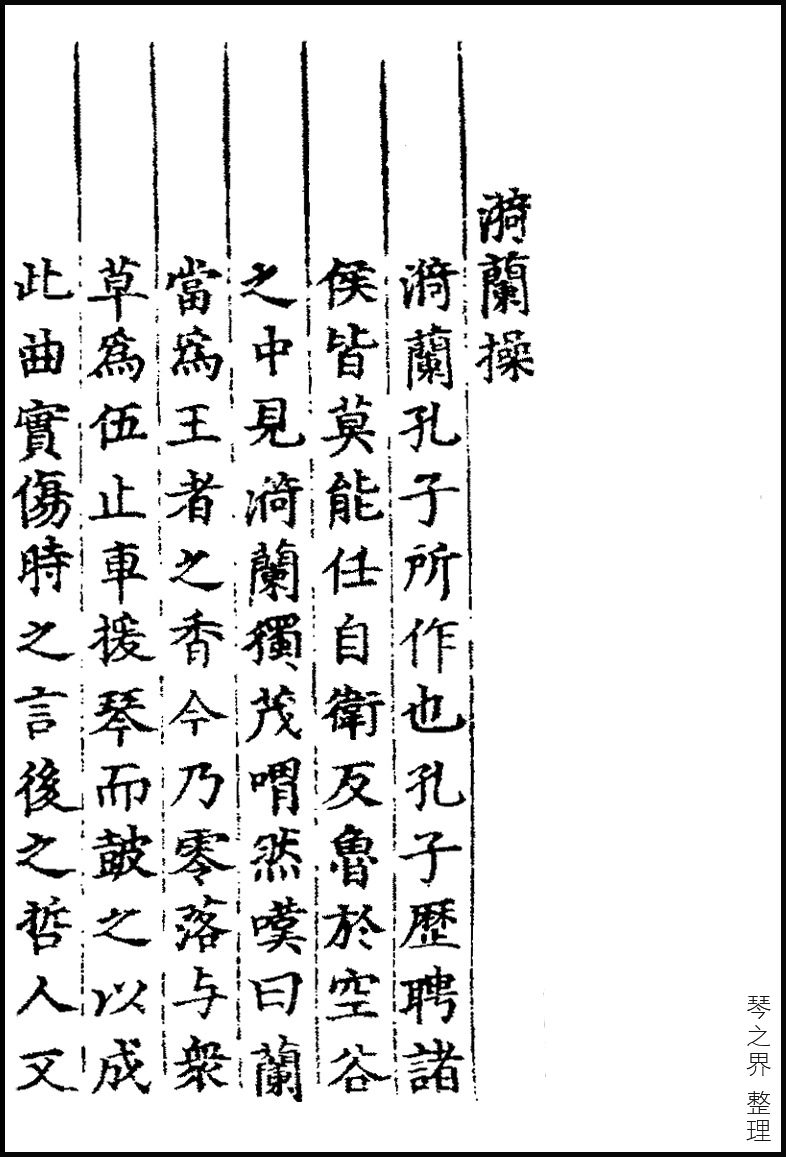 漪蘭操
漪蘭孔子所作也孔子歷聘諸
侯皆莫能任自衛反魯於空谷
之中見漪蘭獨茂喟然嘆曰蘭
當爲王者之香今乃零落与衆
草爲伍止車援琴而鼓之以成
此曲實傷時之言後之哲人又
琴之界 整理